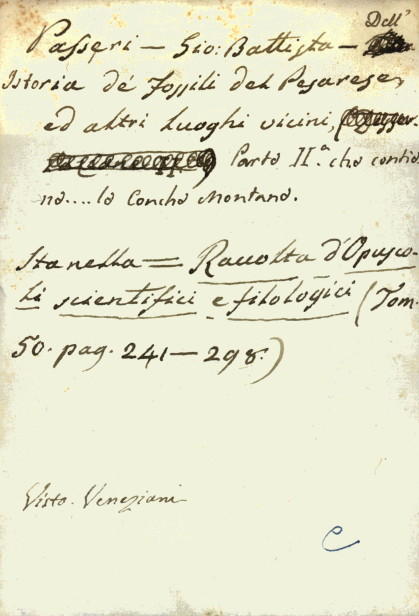 Passeri — Gio: Battista — Dell'
Istoria de' fossili del Pesarese,
ed altri luoghi vicini,
Parte II.ª che contie
ne.... le Conche Montane.
Sta nella = Raccolta d'Opusco-
li scientifici e filologici (Tom.
50. pag. 241 — 298.)
Visto. Veneziani
C